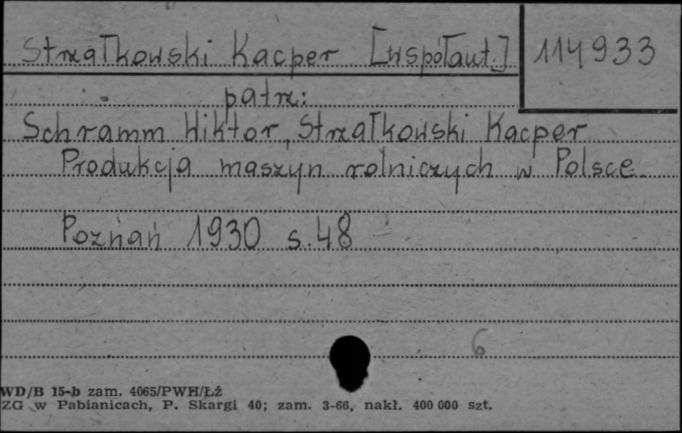 Strzałkowski Kacper [współaut.] 114933
patrz:
Schramm Wiktor, Strzałkowski Kacper
Produkcja maszyn rolniczych w Polsce
Poznań 1930 s. 48
6
WD/B 15-b zam. 4065/PWH/Łź
ZG w Pabianicach, P. Skargi 40; zam. 3-66, nakł. 400 000 szt.